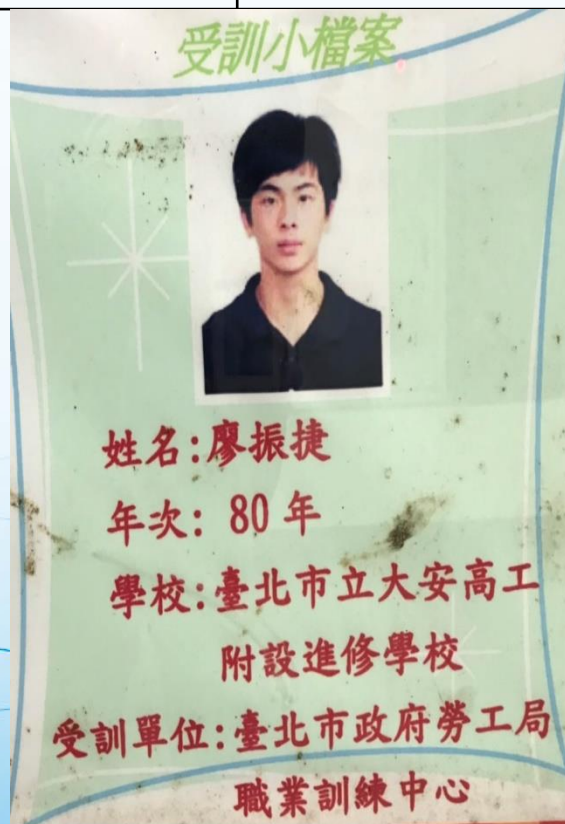 受訓小檔案
姓名:廖振捷
年次: 80 年
學校:臺北市立大安高工
附設進修學校
受訓單位:臺北市政府勞工局
職業訓練中心